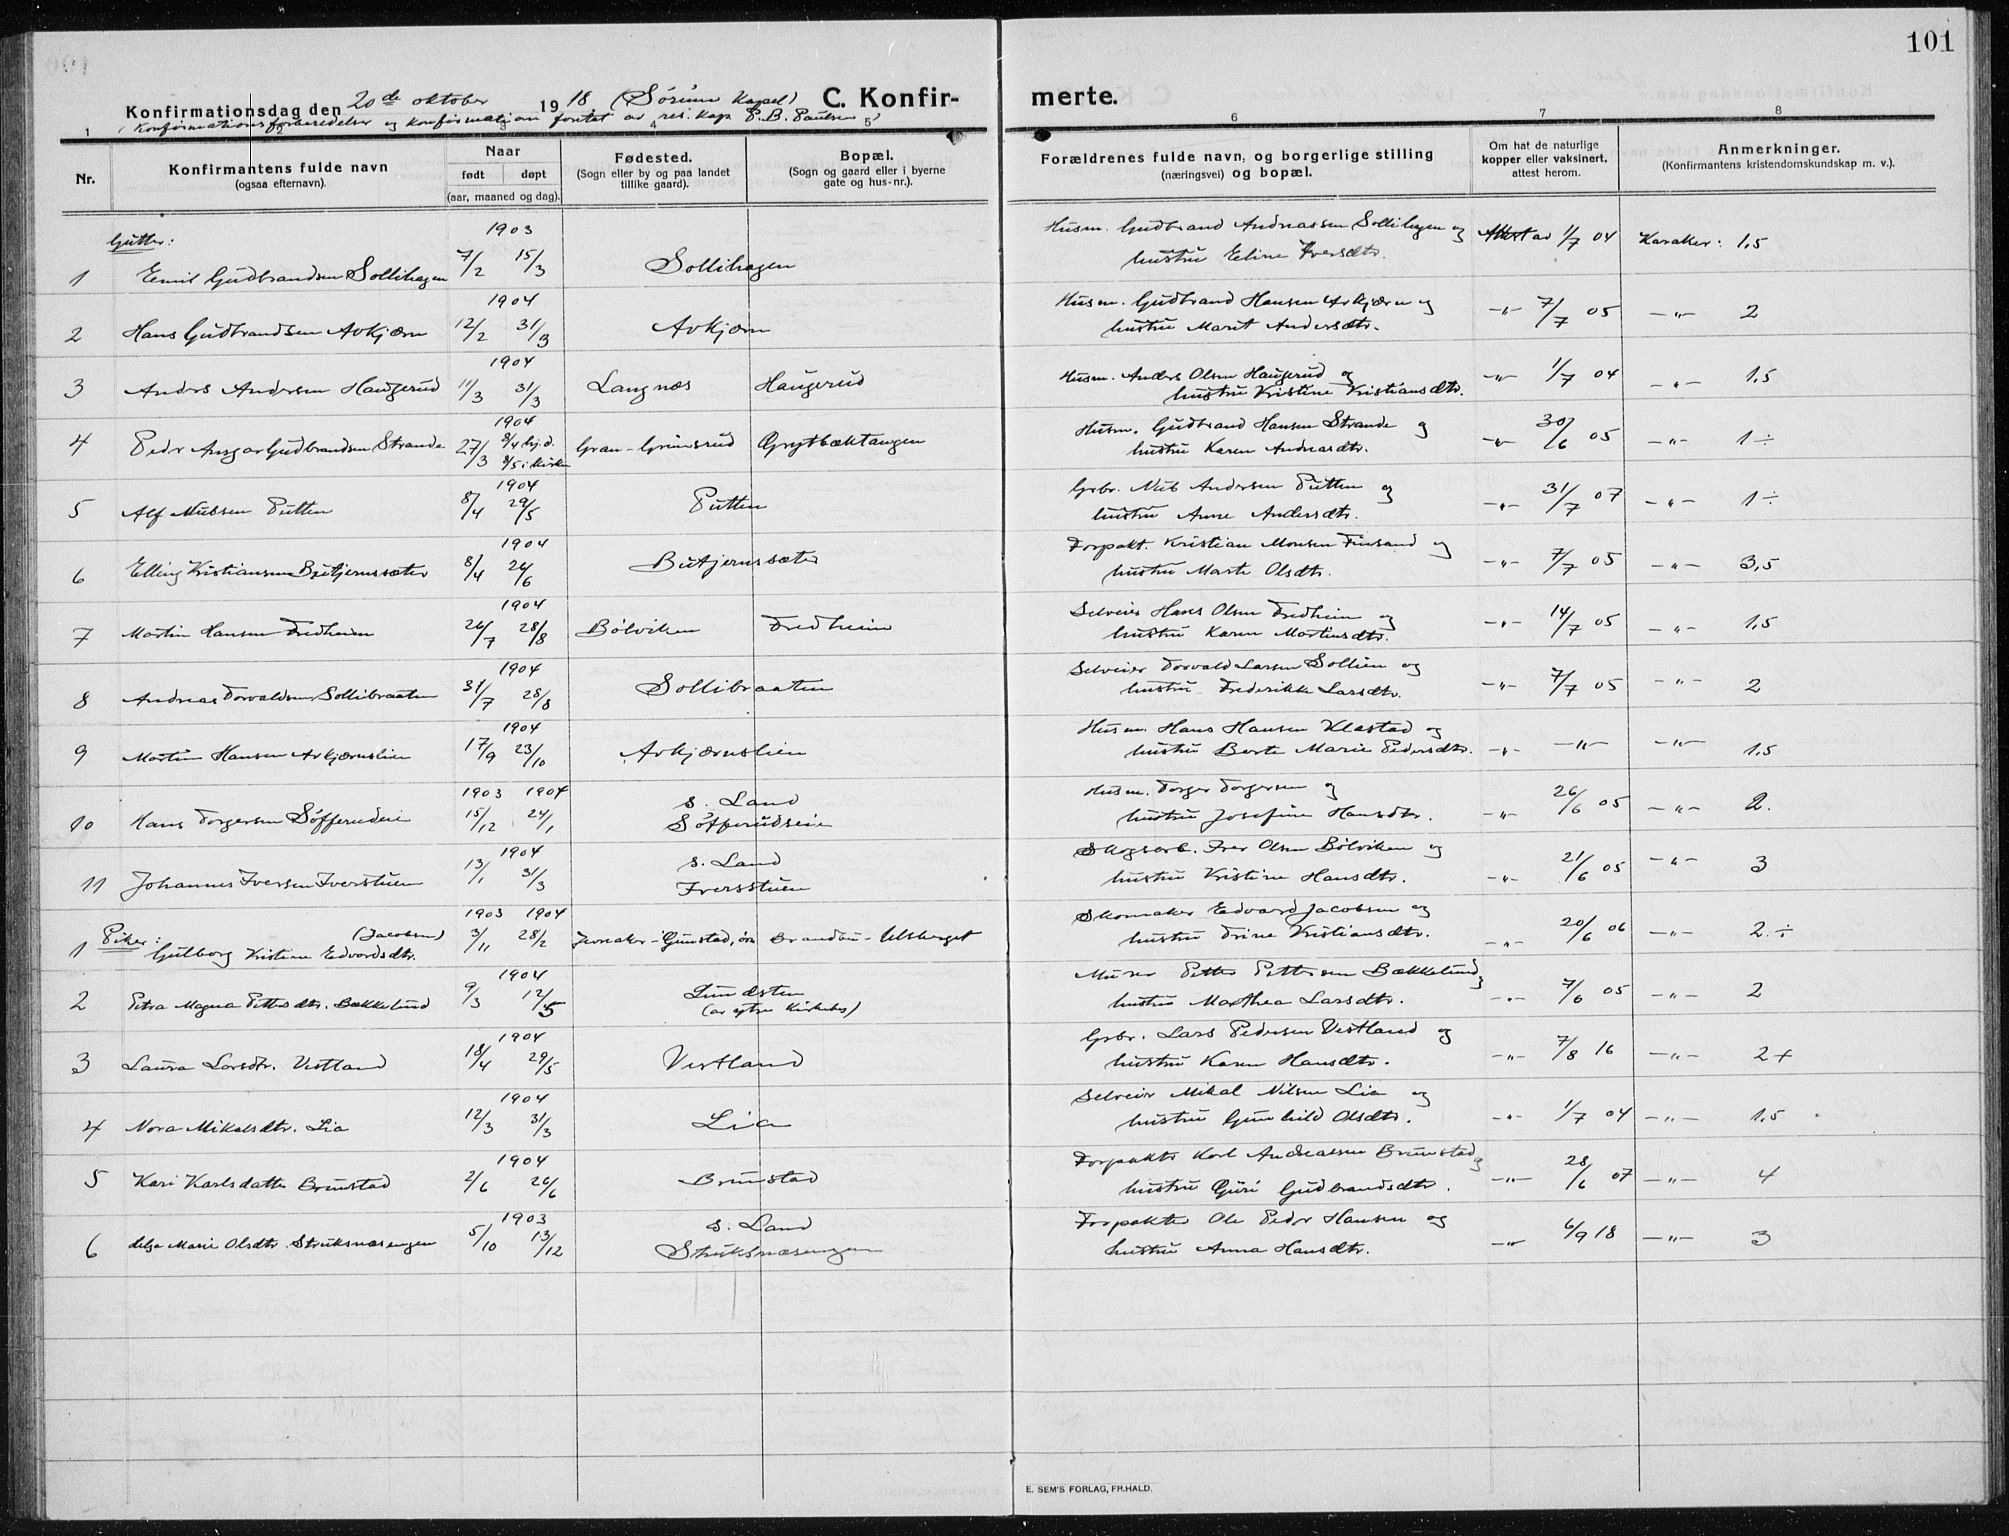 101
Konfirmationsdag den 20de oktober 1918 (Sørum Kapel) C. Konfir-
merte.
(Konfirmationsforberedelse og konfirmation foretat av res. kap. P. B. Paulsen)
1 2 3 4 5 6 7 8
Nr. Konfirmantens fulde navn (ogsaa efternavn). Naar født døpt (aar, maaned og dag). Fødested. (Sogn eller by og paa landet tillike gaard). Bopæl. (Sogn og gaard eller i byerne gate og hus-nr.). Forældrenes fulde navn, og borgerlige stilling (næringsvei) og bopæl. Om hat de naturlige kopper eller vaksinert, attest herom. Anmerkninger. (Konfirmantens kristendomskundskap m. v.).
Gutter: 1903
1 Emil Gudbrandsen Sollihagen 7/2 15/3 Sollihagen Husm. Gudbrand Andreassen Sollihagen og
hustru Eline Iversdtr. Attest av 1/7 04 Karakter: 1,5
1904
2 Hans Gudbrandsen Avkjærn 12/2 31/3 Avkjærn Husm. Gudbrand Hansen Avkjærn og
hustru Marit Andersdtr. -"- 7/7 05 -"- 2
1904
3 Anders Andersen Haugerud 11/3 31/3 Langnæs Haugerud Husm. Anders Olsen Haugerud og
hustru Kristine Kristiansdtr. -"- 1/7 04 -"- 1,5
1904
4 Peder Ansgar Gudbrandsen Strande 27/3 8/4 hj.d. 8/5 i kirken Gran - Grinsrud Grytbæktangen Husm. Gudbrand Hansen Strande og
hustru Karen Andreasdtr. -"- 30/6 05 -"- 1÷
1904
5 Alf Nilssen Putten 8/4 29/5 Putten Grbr. Nils Andersen Putten og
hustru Anne Andersdtr. -"- 31/7 07 -"- 1÷
1904
6 Elling Kristiansen Butjernsæter 8/4 26/6 Butjernsæter Forpakt. Kristian Monsen Finsand og
hustru Marte Olsdtr. -"- 7/7 05 -"- 3,5
1904
7 Martin Hansen Fredheim 26/7 28/8 Bølviken Fredheim Selveier Hans Olsen Fredheim og
hustru Karen Martinsdtr. -"- 14/7 05 -"- 1,5
1904
8 Andreas Torvaldsen Sollibraaten 31/7 28/8 Sollibraaten Selveier Torvald Larsen Sollien og
hustru Frederikke Larsdtr. -"- 7/7 05 -"- 2
1904
9 Martin Hansen Avkjærnslien 17/9 23/10 Avkjærnslien Husm. Hans Hansen Klæstad og
hustru Berte Marie Pedersdtr. -"- -"- -"- 1,5
1903 1904
10 Hans Torgersen Søfferudeie 15/12 24/1 S. Land
Søfferudseie Husm. Torger Torgersen og
hustru Josefine Hansdtr. -"- 26/6 05 -"- 2.
1904
11 Johannes Iversen Iverstuen 13/1 31/3 S. Land
Iversstuen Skogsarb. Iver Olsen Bølviken og
hustru Kristine Hansdtr. -"- 21/6 05 -"- 3
Piker: 1903 1904
1 Gulborg Kristine Edvardsdtr. (Jacobsen) 3/11 28/2 Jevnaker - Gunstad, øv Brandbu - Ulsberget Skomaker Edvard Jacobsen og
hustru Trine Kristiansdtr. -"- 20/6 06 -"- 2.÷
1904
2 Petra Magna Pettersdtr. Bækkelund 9/3 12/5 Lundsten Murer Petter Pettersen Bækkelund og
hustru Marthea Larsdtr. -"- 7/6 05 -"- 2
1904
3 Laura Larsdtr. Vestland 18/4 29/5 Vestland Grbr. Lars Pedersen Vestland og
hustru Karen Hansdtr. -"- 7/8 16 -"- 2+
1904
4 Nora Mikalsdtr. Lia 12/3 31/3 Lia Selveier Mikal Nilsen Lia og
hustru Gunhild Olsdtr. -"- 1/7 04 -"- 1,5
1904
5 Kari Karlsdatter Brunstad 2/6 26/6 Brunstad Forpakter Karl Andreassen Brunstad og
hustru Guri Gudbrandsdtr. -"- 28/6 07 -"- 4
1903
6 Marie Olsdtr. Struksnæsengen 5/10 13/12 S. Land
Struksnæsengen Forpakter Ole Peder Hansen og
hustru Anna Hansdtr. -"- 6/9 18 -"- 3
E. SEM'S FORLAG, FR.HALD.